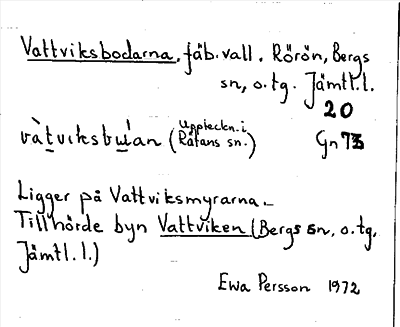 Vattviksbodarna, fäb.vall. Rörön, Bergs
sn, o.tg. Jämtl.l.
20
vàtviksbu̍an (Uppteckn. i
Rätans sn.) Gn 73
Ligger på Vattviksmyrarna.
Tillhörde byn Vattviken (Bergs sn, o.tg,
Jämtl. l.)
Ewa Persson 1972